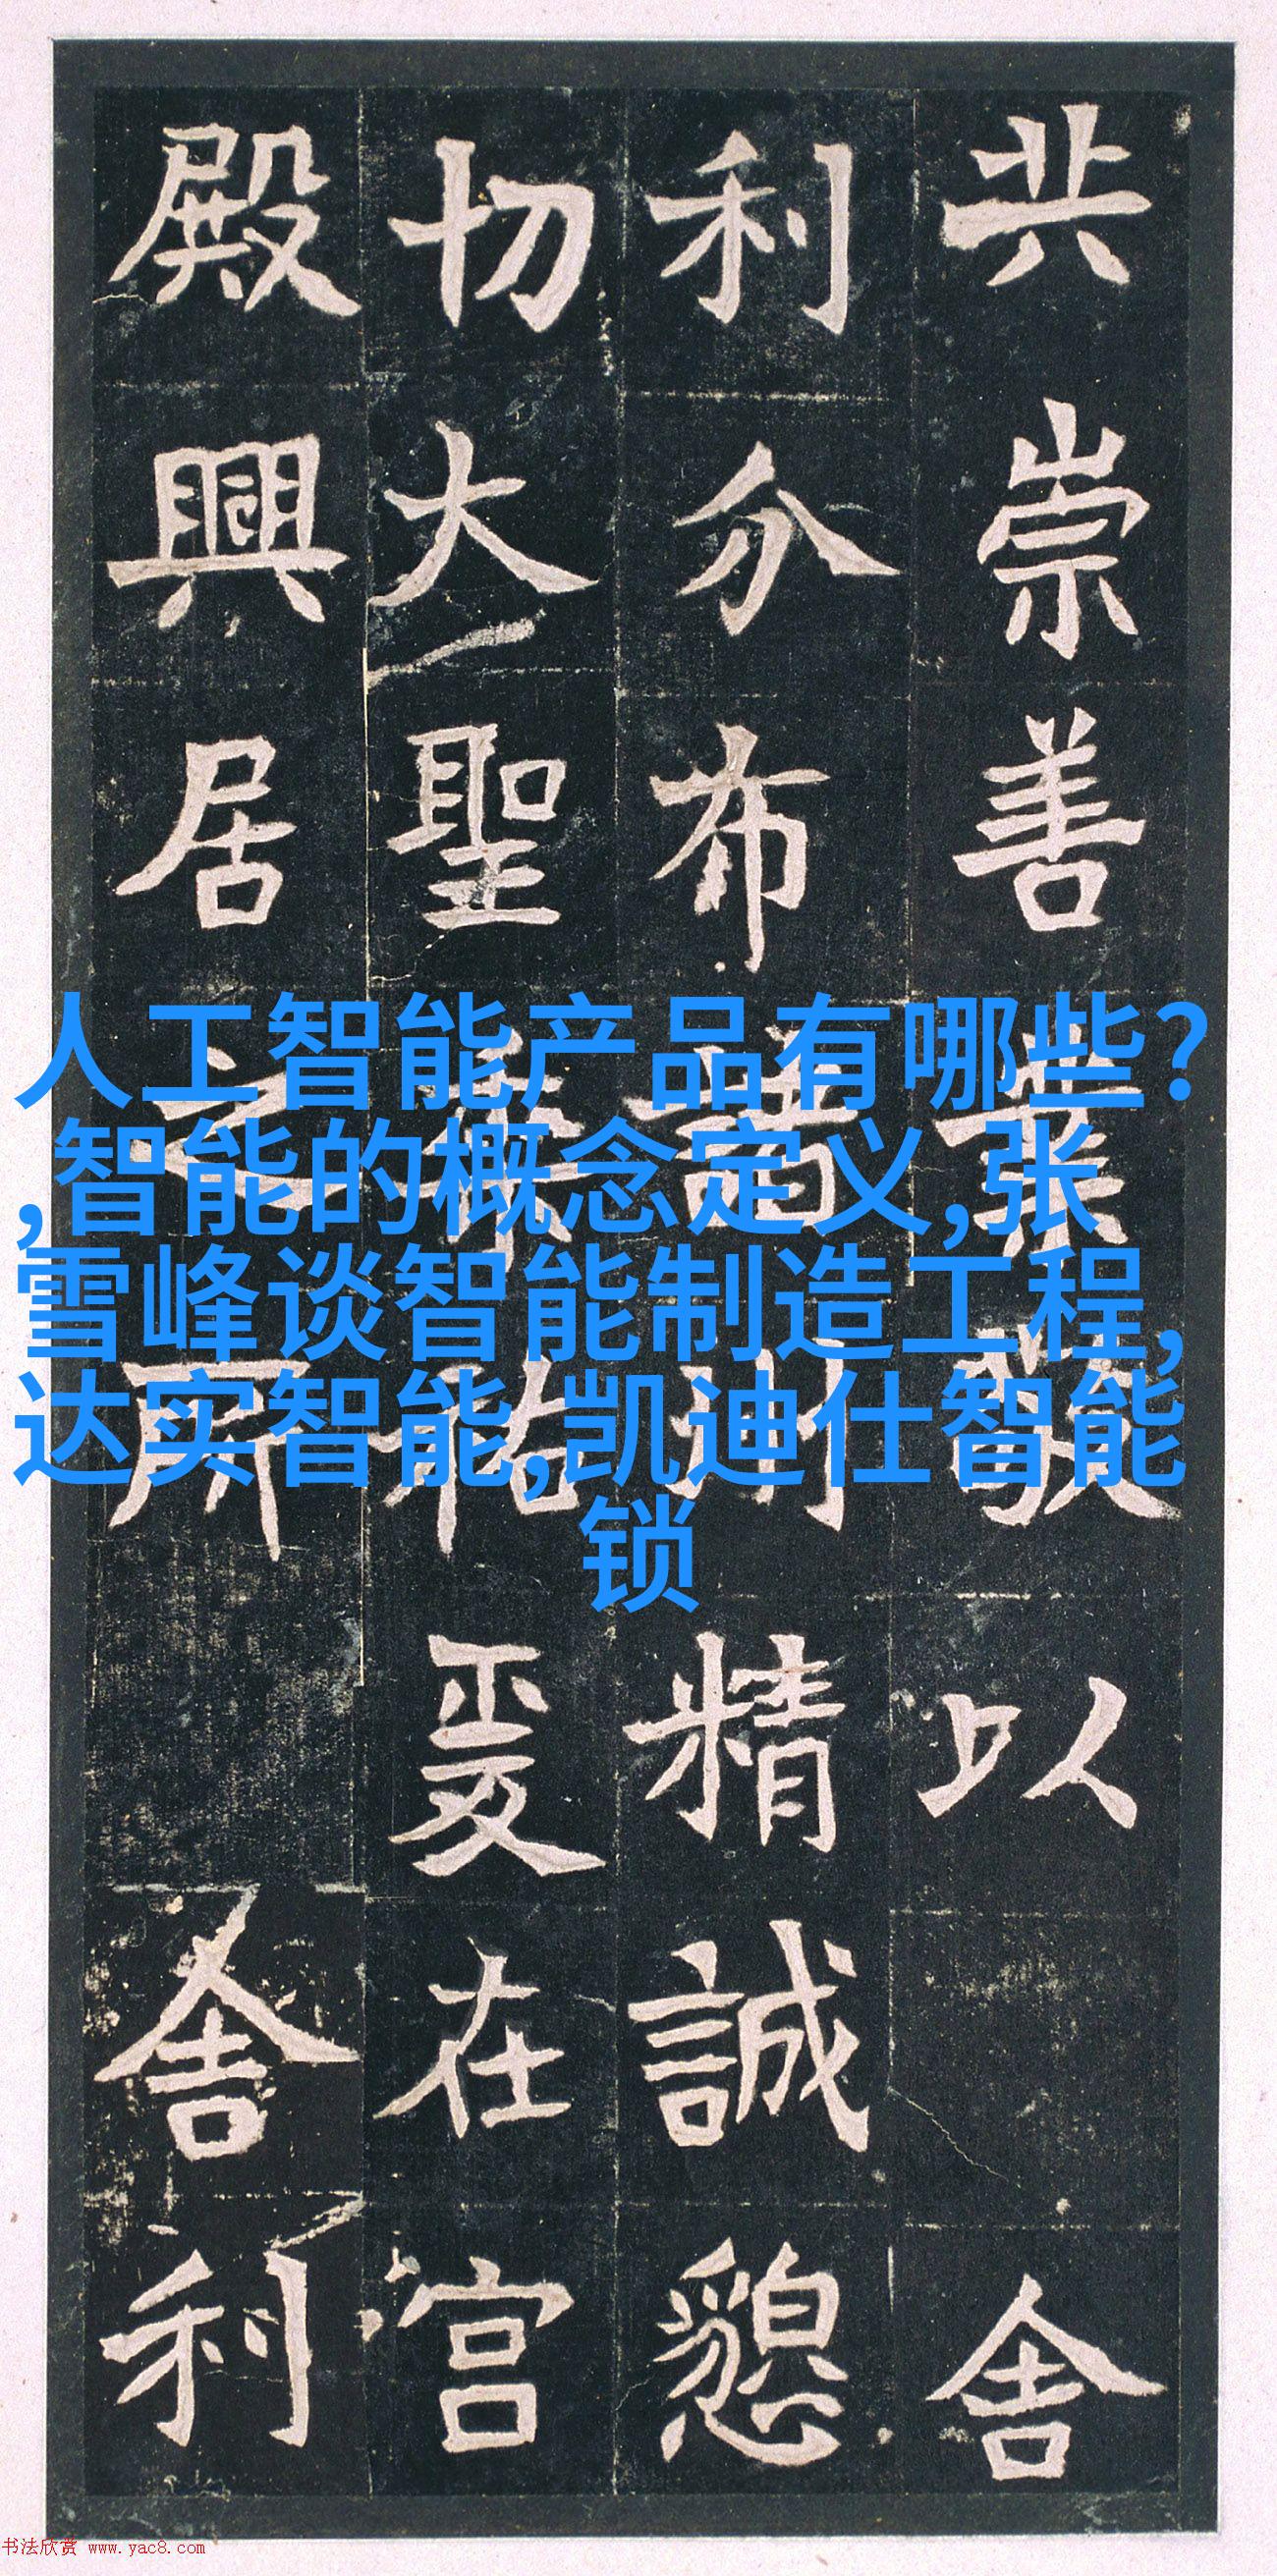 共崇善業敬以舍
利分布諸州精誠懇
切大聖垂祐爰在宫
殿興居之所舍利
人工智能产品有哪些?
,智能的概念定义,张
雪峰谈智能制造工程,
达实智能,凯迪仕智能
锁
书法欣赏 www.yac8.com